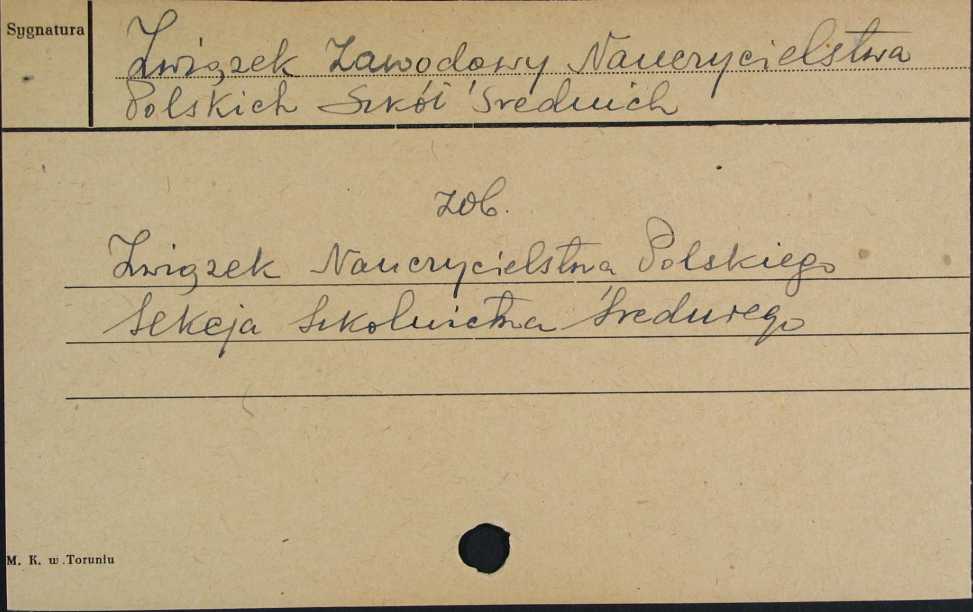 Sygnatura
Związek Zawodowy Nauczycielstwa
Polskich Szkół Średnich
zob.
Związek Nauczycielstwa Polskiego
Sekcja Szkolnictwa Średniego
M. K. w Toruniu